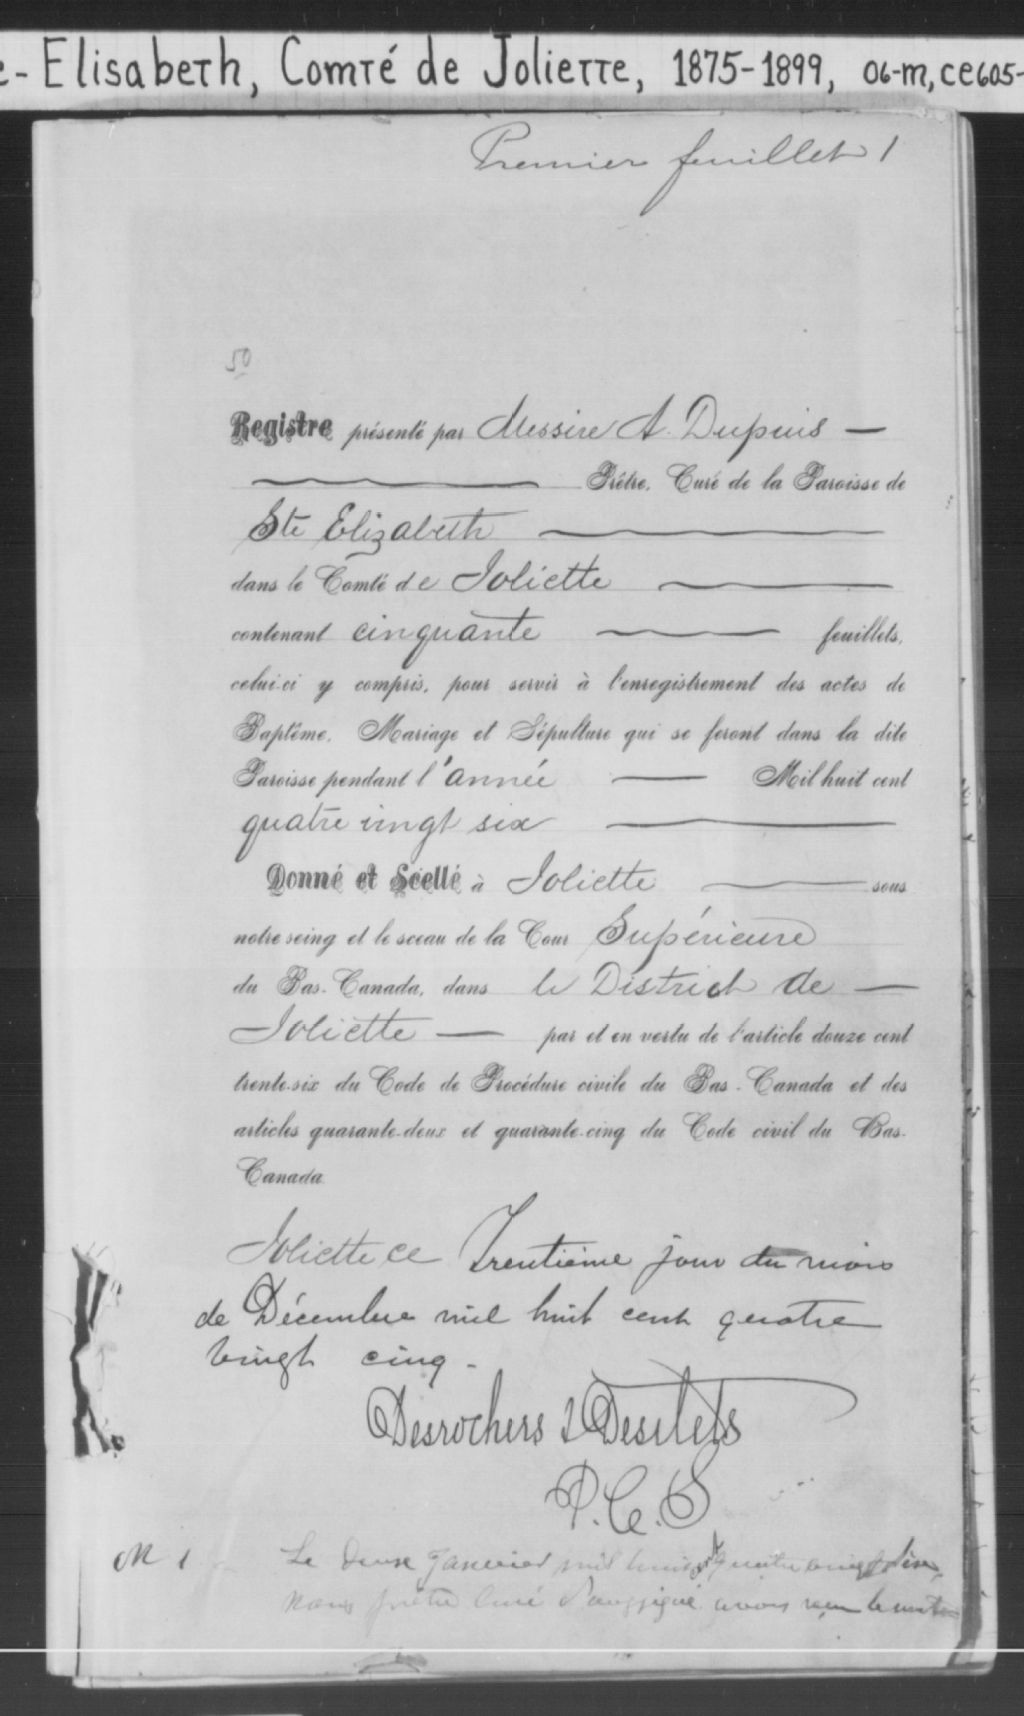 e-Elisabeth, Comté de Joliette, 1875-1899, 06-m, ce605-
Premier feuillet 1
50
Registre présenté par Messire A. Dupuis —
Prêtre, Curé de la Paroisse de
Ste Elizabeth
dans le Comté de Joliette
contenant cinquante feuillets,
celui-ci y compris, pour servir à l'enregistrement des actes de
Baptême, Mariage et Sépulture qui se feront dans la dite
Paroisse pendant l'année — Mil huit cent
quatre vingt six
Donné et Scellé à Joliette sous
notre seing et le sceau de la Cour Supérieure
du Bas-Canada, dans le District de —
Joliette — par et en vertu de l'article douze cent
trente-six du Code de Procédure civile du Bas-Canada et des
articles quarante-deux et quarante-cinq du Code civil du Bas-
Canada.
Joliette ce Trentième jour du mois
de Décembre mil huit cent quatre
vingt cinq -
Desrochers & Desilets
P.C.S
M 1 Le deux Janvier mil huit cent quatre vingt six,
nous prêtre Curé soussigné avons